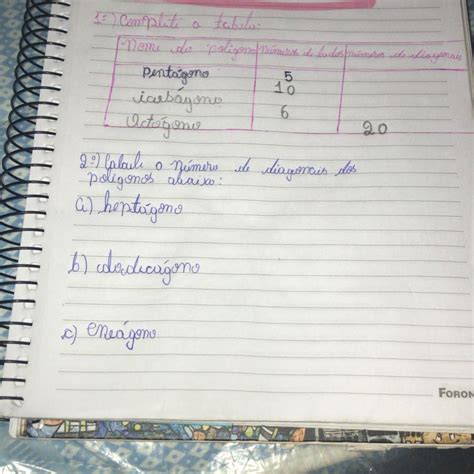 1º) Complete a tabela:
Nome do polígono números de lados números de diagonais
Pentágono 5
10
icoságono
6
Octógono 20
2º) Calcule o número de diagonais dos
polígonos abaixo:
a) heptágono
b) dodecágono
c) eneágono
FORON